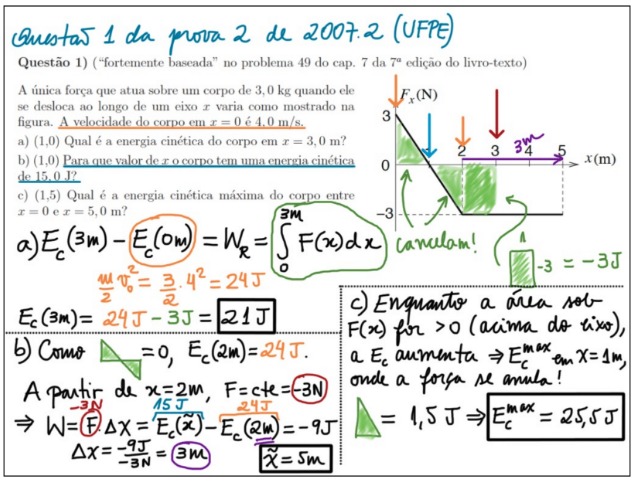 Questão 1 da prova 2 de 2007.2 (UFPE)
Questão 1) ("fortemente baseada" no problema 49 do cap. 7 da 7ª edição do livro-texto)
A única força que atua sobre um corpo de 3,0 kg quando ele
se desloca ao longo de um eixo x varia como mostrado na
figura. A velocidade do corpo em x = 0 é 4,0 m/s.
a) (1,0) Qual é a energia cinética do corpo em x = 3,0 m?
b) (1,0) Para que valor de x o corpo tem uma energia cinética
de 15,0 J?
c) (1,5) Qual é a energia cinética máxima do corpo entre
x = 0 e x = 5,0 m?
F_x(N)
3
3m
0 1 2 3 4 5 x(m)
−3
cancelam!
1
-3 = -3J
a) E_c(3m) - E_c(0m) = W_R = ∫_0^{3m} F(x)dx
m/2 v_0² = 3/2 · 4² = 24J
E_c(3m) = 24J - 3J = 21J
b) Como = 0, E_c(2m) = 24J.
A partir de x=2m, F=cte=-3N
-3N 15J 24J
⇒ W = F Δx = E_c(x̃) - E_c(2m) = -9J
Δx = -9J/-3N = 3m x̃ = 5m
c) Enquanto a área sob
F(x) for >0 (acima do eixo),
a E_c aumenta ⇒ E_c^max em x=1m,
onde a força se anula!
= 1,5 J ⇒ E_c^max = 25,5J